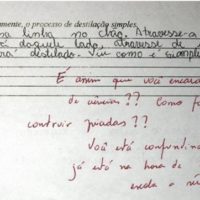 mente, o processo de destilação simples.
linha no chão. Atravesse-a
daquele lado, atravesse de
destilado. Viu como é simples
É assim que você encara
de ciências?? Como
construir piadas??
Você está confundindo
já está na hora de
escola a